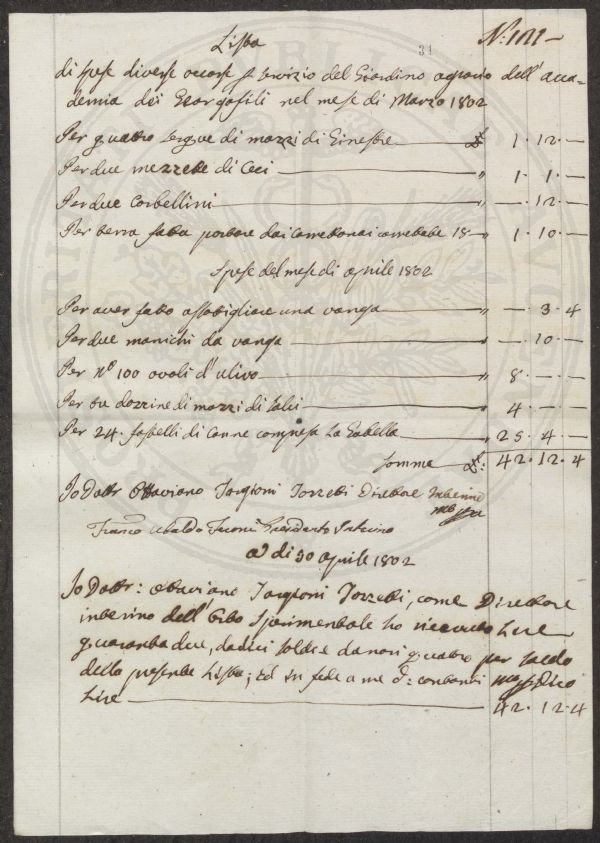 Lista
31
N.° 111 —
di spese diverse occorse per servizio del Giardino agrario dell' acca-
demia dei Georgofili nel mese di Marzo 1802
Per quattro sergue di mazzi di Ginestre — £ 1. 12. —
Per due mezzette di Ceci — " 1. 1. —
Per due Corbellini — " —. 12. —
Per terra fatta portare dai Carrettonai carrettate 18 — " 1. 10. —
Spese del mese di aprile 1802
Per aver fatto assottigliare una vanga — " —. 3. 4
Per due manichi da vanga — " —. 10. —
Per N.° 100 ovoli d' ulivo — " 8. — —
Per tre dozzine di mazzi di salci — " 4. — —
Per 24. fastelli di Canne compresa La Gabella — " 25. 4. —
Somma £: 42. 12. 4
Io Dott.r Ottaviano Targioni Tozzetti Direttore Interino
mp.ppa
Franc.o Ubaldo Feroni Presidente Interino
a di 30 aprile 1802
Io Dott.r: Ottaviano Targioni Tozzetti, come Direttore
interino dell' Orto Sperimentale ho ricevuto Lire
quaranta due, dodici soldi e danari quattro per saldo
della presente Lista; ed in fede a me d: contanti
Lire — 42. 12. 4